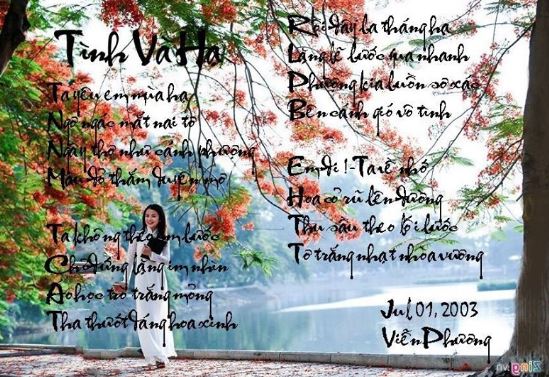 Tình Và Hạ
Ta yêu em mùa hạ
Ngơ ngác mắt nai tơ
Ngây thơ như cánh phượng
Màu đỏ thắm duyên mơ
Ta không theo em bước
Chỉ đứng lặng im nhìn
Áo học trò trắng mỏng
Tha thướt dáng hoa xinh
Rồi đây là tháng hạ
Lặng lẽ bước qua nhanh
Phượng kia buồn xơ xác
Bên cánh gió vô tình
Em đi ! - Ta về nhớ
Hoa cỏ rũ lên đường
Thu sầu theo lối bước
Tơ trắng nhạt nhòa vương
Jul 01, 2003
Viễn Phương